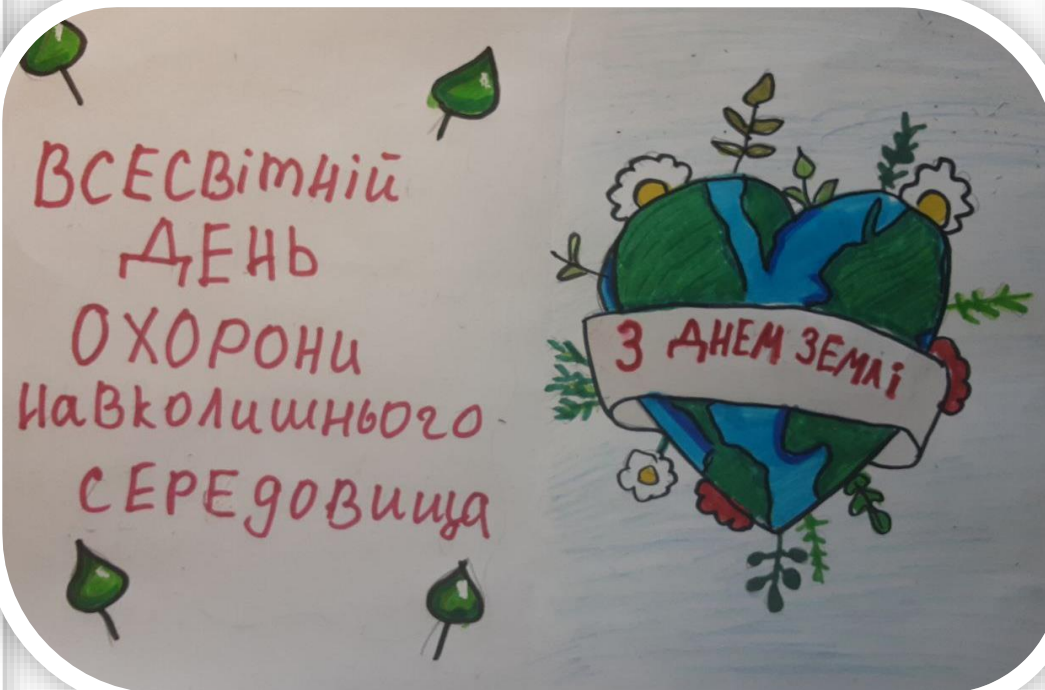 ВСЕСВітНій
ДЕНЬ
ОХОРОНИ
НаВКОЛИШНЬОГО
СЕРЕдОВИЩа
З ДНЕМ ЗЕМЛі